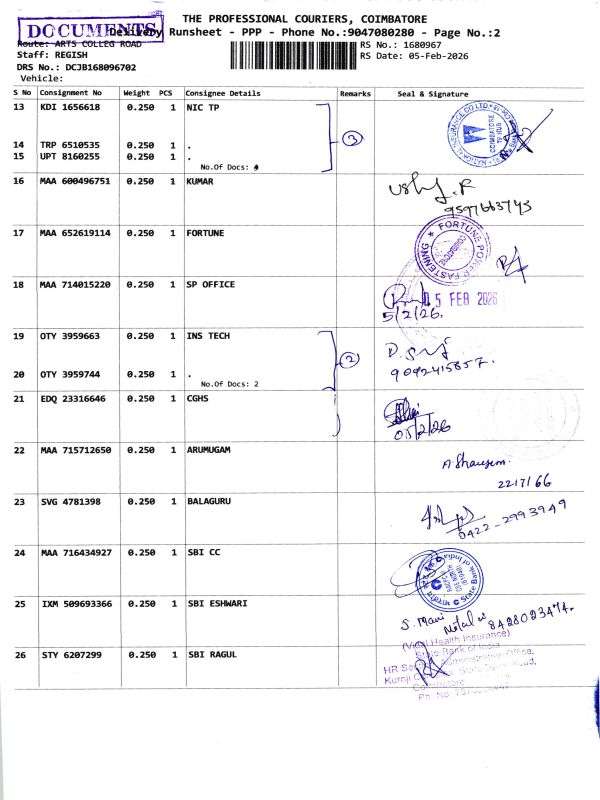 THE PROFESSIONAL COURIERS, COIMBATORE
DOCUMENTS
Delivery Runsheet - PPP - Phone No.:9047080280 - Page No.:2
Route: ARTS COLLEG ROAD
RS No.: 1680967
Staff: REGISH
RS Date: 05-Feb-2026
DRS No.: DCJB168096702
Vehicle:
S No Consignment No Weight PCS Consignee Details Remarks Seal & Signature
13 KDI 1656618 0.250 1 NIC TP
3
14 TRP 6510535 0.250 1 .
15 UPT 8160255 0.250 1 .
No.Of Docs:
NATIONAL INSURANCE CO LTD.
COIMBATORE
16 MAA 600496751 0.250 1 KUMAR
9597663743
17 MAA 652619114 0.250 1 FORTUNE
FORTUNE POWER FASTENING
COIMBATORE
18 MAA 714015220 0.250 1 SP OFFICE
5 FEB 2026
5/2/26.
19 OTY 3959663 0.250 1 INS TECH
2
20 OTY 3959744 0.250 1 .
No.Of Docs: 2
9092415857.
21 EDQ 23316646 0.250 1 CGHS
05/2/26
22 MAA 715712650 0.250 1 ARUMUGAM
2217166
23 SVG 4781398 0.250 1 BALAGURU
0422-2993949
24 MAA 716434927 0.250 1 SBI CC
State Bank of India
25 IXM 509693366 0.250 1 SBI ESHWARI
S. Mani
8428023474.
26 STY 6207299 0.250 1 SBI RAGUL
Health Insurance)
State Bank of India
Administrative Office,
State Bank Road,
Coimbatore
Ph. No.